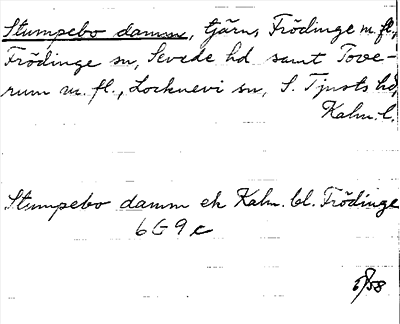 Stumpebo damm, tjärn, Frödinge m. fl.,
Frödinge sn, Sevede hd samt Tove-
rum m. fl., Locknevi sn, S. Tjusts hd,
Kalm. l.
Stumpebo damm ek Kalm. bl. Frödinge
6G9c
58